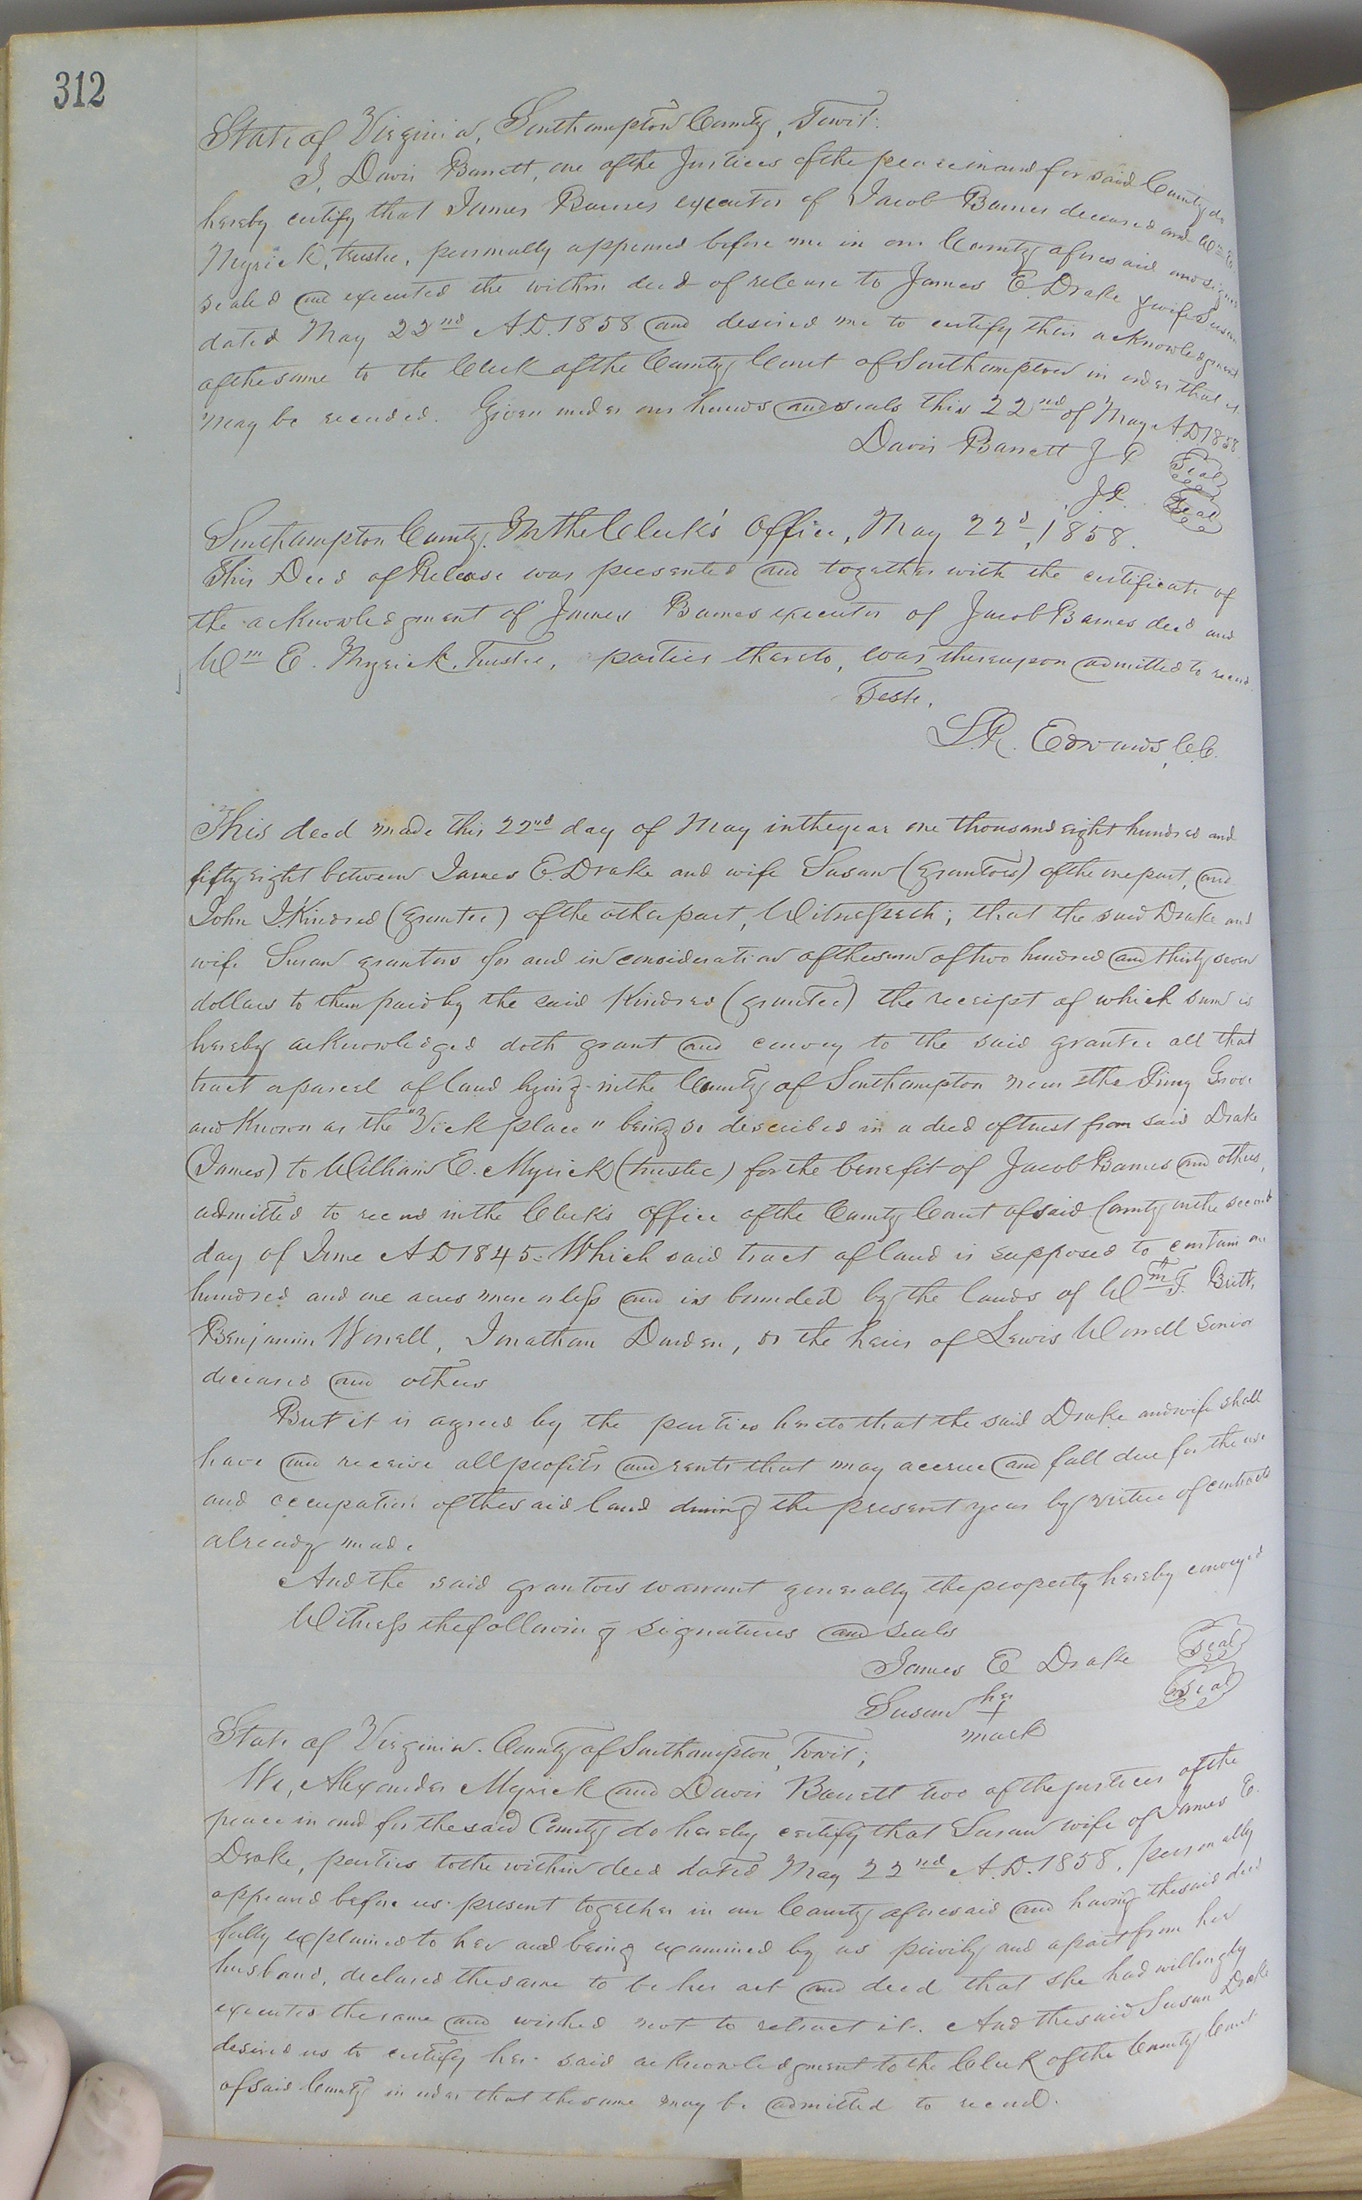 312
State of Virginia, Southampton County, Towit:
I, Davis Barrett, one of the Justices of the peace in and for said County do
hereby certify that James Barnes executor of Jacob Barnes deceased and Wm E.
Myrick, trustee, personally appeared before me in our County aforesaid and signed
sealed and executed the within deed of release to James E. Drake & wife Susan
dated May 22nd A.D. 1858 and desired me to certify their acknowledgment
of the same to the Clerk of the County Court of Southampton in order that it
may be recorded. Given under our hands and seals this 22nd of May A.D. 1858.
Davis Barrett J P Seal
J.P. Seal
Southampton County. In the Clerk's Office, May 22d, 1858.
This Deed of Release was presented and together with the certificate of
the acknowledgment of James Barnes executor of Jacob Barnes decd and
Wm E. Myrick, Trustee, parties thereto, was thereupon admitted to record.
Teste,
L.R. Edwards, C.C.
This deed made this 22nd day of May in the year one thousand eight hundred and
fifty eight between James E. Drake and wife Susan (grantors) of the one part, and
John J. Kindred (grantee) of the other part, Witnesseth; that the said Drake and
wife Susan grantors for and in consideration of the sum of two hundred and thirty seven
dollars to them paid by the said Kindred (grantee) the receipt of which sum is
hereby acknowledged doth grant and convey to the said grantee all that
tract or parcel of land lying in the County of Southampton near the Piney Grove
and known as the "Vick place" being so described in a deed of trust from said Drake
(James) to William E. Myrick (trustee) for the benefit of Jacob Barnes and others,
admitted to record in the Clerk's office of the County Court of said County on the second
day of June A D 1845. Which said tract of land is supposed to contain one
hundred and one acres more or less and is bounded by the lands of Wm T. Britt,
Benjamin Worrell, Jonathan Darden, or the heirs of Lewis Worrell Senior
deceased and others
But it is agreed by the parties hereto that the said Drake and wife shall
have and receive all profits and rents that may accrue and fall due for the use
and occupation of the said land during the present year by virtue of contracts
already made
And the said grantors warrant generally the property hereby conveyed
Witness the following signatures and seals
James E Drake Seal
Susan her + Seal
mark
State of Virginia. County of Southampton, Towit;
We, Alexander Myrick and Davis Barrett two of the justices of the
peace in and for the said County do hereby certify that Susan wife of James E.
Drake, parties to the within deed dated May 22nd A.D. 1858, personally
appeared before us present together in our County aforesaid and having the said deed
fully explained to her and being examined by us privily and apart from her
husband, declared the same to be her act and deed that she had willingly
executed the same and wished not to retract it. And the said Susan Drake
desired us to certify her said acknowledgment to the Clerk of the County Court
of said County in order that the same may be admitted to record.